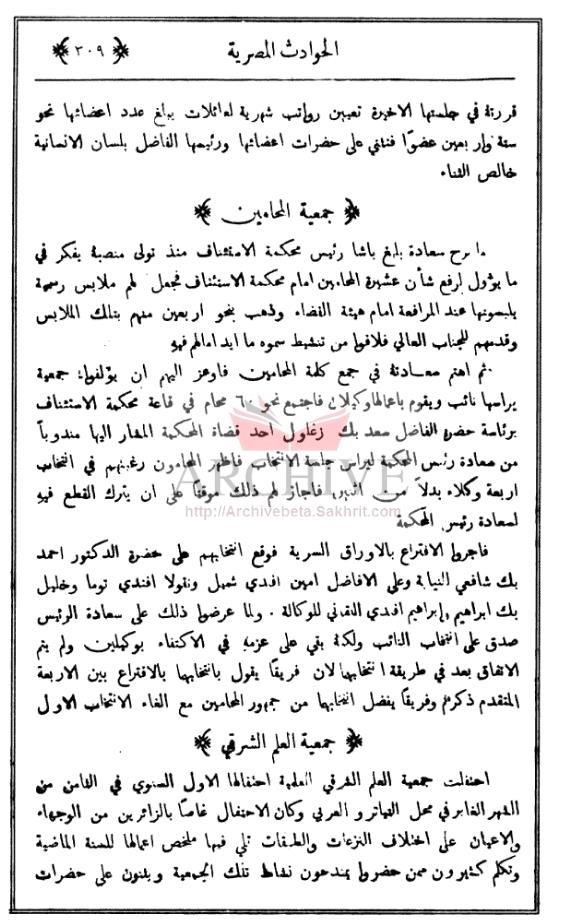 الحوادث المصرية
﴿٣٠٩﴾
قررته في جلستها الاخيرة تعيين رواتب شهرية لعائلات يبلغ عدد اعضائها نحو
ستة واربعين عضوًا فنثني على حضرات اعضائها ورئيسها الفاضل بلسان الانسانية
خالص الثناء
﴿ جمعية المحامين ﴾
ما برح سعادة بليغ باشا رئيس محكمة الاستئناف منذ تولى منصبه يفكر في
ما يؤول لرفع شأن عشيرة المحامين امام محكمة الاستئناف فجعل لهم ملابس رسمية
يلبسونها عند المرافعة امام هيئة القضاء وذهب بنحو اربعين منهم بتلك الملابس
وقدمهم للجناب العالي فلاقوا من تنشيط سموه ما ايد امالهم فيه
ثم اهتم سعادته في جمع كلمة المحامين فاوعز اليهم ان يؤلفوا جمعية
يراسها نائب ويقوم باعمالها وكيلان فاجتمع نحو ٦٠ محام في قاعة محكمة الاستئناف
برئاسة حضرة الفاضل سعد بك زغلول احد قضاة المحكمة المشار اليها مندوباً
من سعادة رئيس المحكمة ليراس جلسة الانتخاب فاظهر المحامون رغبتهم في انتخاب
اربعة وكلاء بدلاً من اثنين فاجاز لهم ذلك موقتاً على ان يترك القطع فيه
لسعادة رئيس المحكمة
فاجروا الاقتراع بالاوراق السرية فوقع انتخابهم على حضرة الدكتور احمد
بك شافعي للنيابة وعلى الافاضل امين افندي شميل ونقولا افندي توما وخليل
بك ابراهيم وابراهيم افندي اللقاني للوكالة . ولما عرضوا ذلك على سعادة الرئيس
صدق على انتخاب النائب ولكنه بقي على عزمه في الاكتفاء بوكيلين ولم يتم
الاتفاق بعد في طريقة انتخابهما لان فريقًا يقول بانتخابها بالاقتراع بين الاربعة
المتقدم ذكرهم وفريقًا يفضل انتخابها من جمهور المحامين مع الغاء الانتخاب الاول
﴿ جمعية العلم الشرقي ﴾
احتفلت جمعية العلم الشرقي العلمية احتفالها الاول السنوي في الثامن من
الشهر الغابر في محل التياترو العربي وكان الاحتفال غاصًا بالزائرين من الوجهاء
والاعيان على اختلاف النزعات والطبقات تلي فيها ملخص اعمالها للسنة الماضية
وتكلم كثيرون ممن حضروا يمتدحون نشاط تلك الجمعية ويثنون على حضرات
ARCHIVE
http://Archivebeta.Sakhrit.com